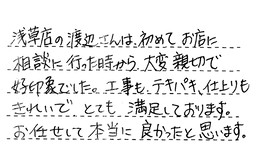 浅草店の渡辺さんは、初めてお店に
相談に行った時から、大変親切で
好印象でした。工事も、テキパキ、仕上りも
きれいで とても 満足しております。
お任せして本当に 良かったと思います。